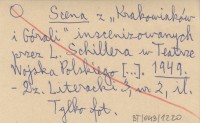 Scena z „Krakowiaków
i Górali" inscenizowanych
przez L. Schillera w Teatrze
Wojska Polskiego [...]. 1949.
- Dz. Literacki, nr 2, il.
Tylko fot.